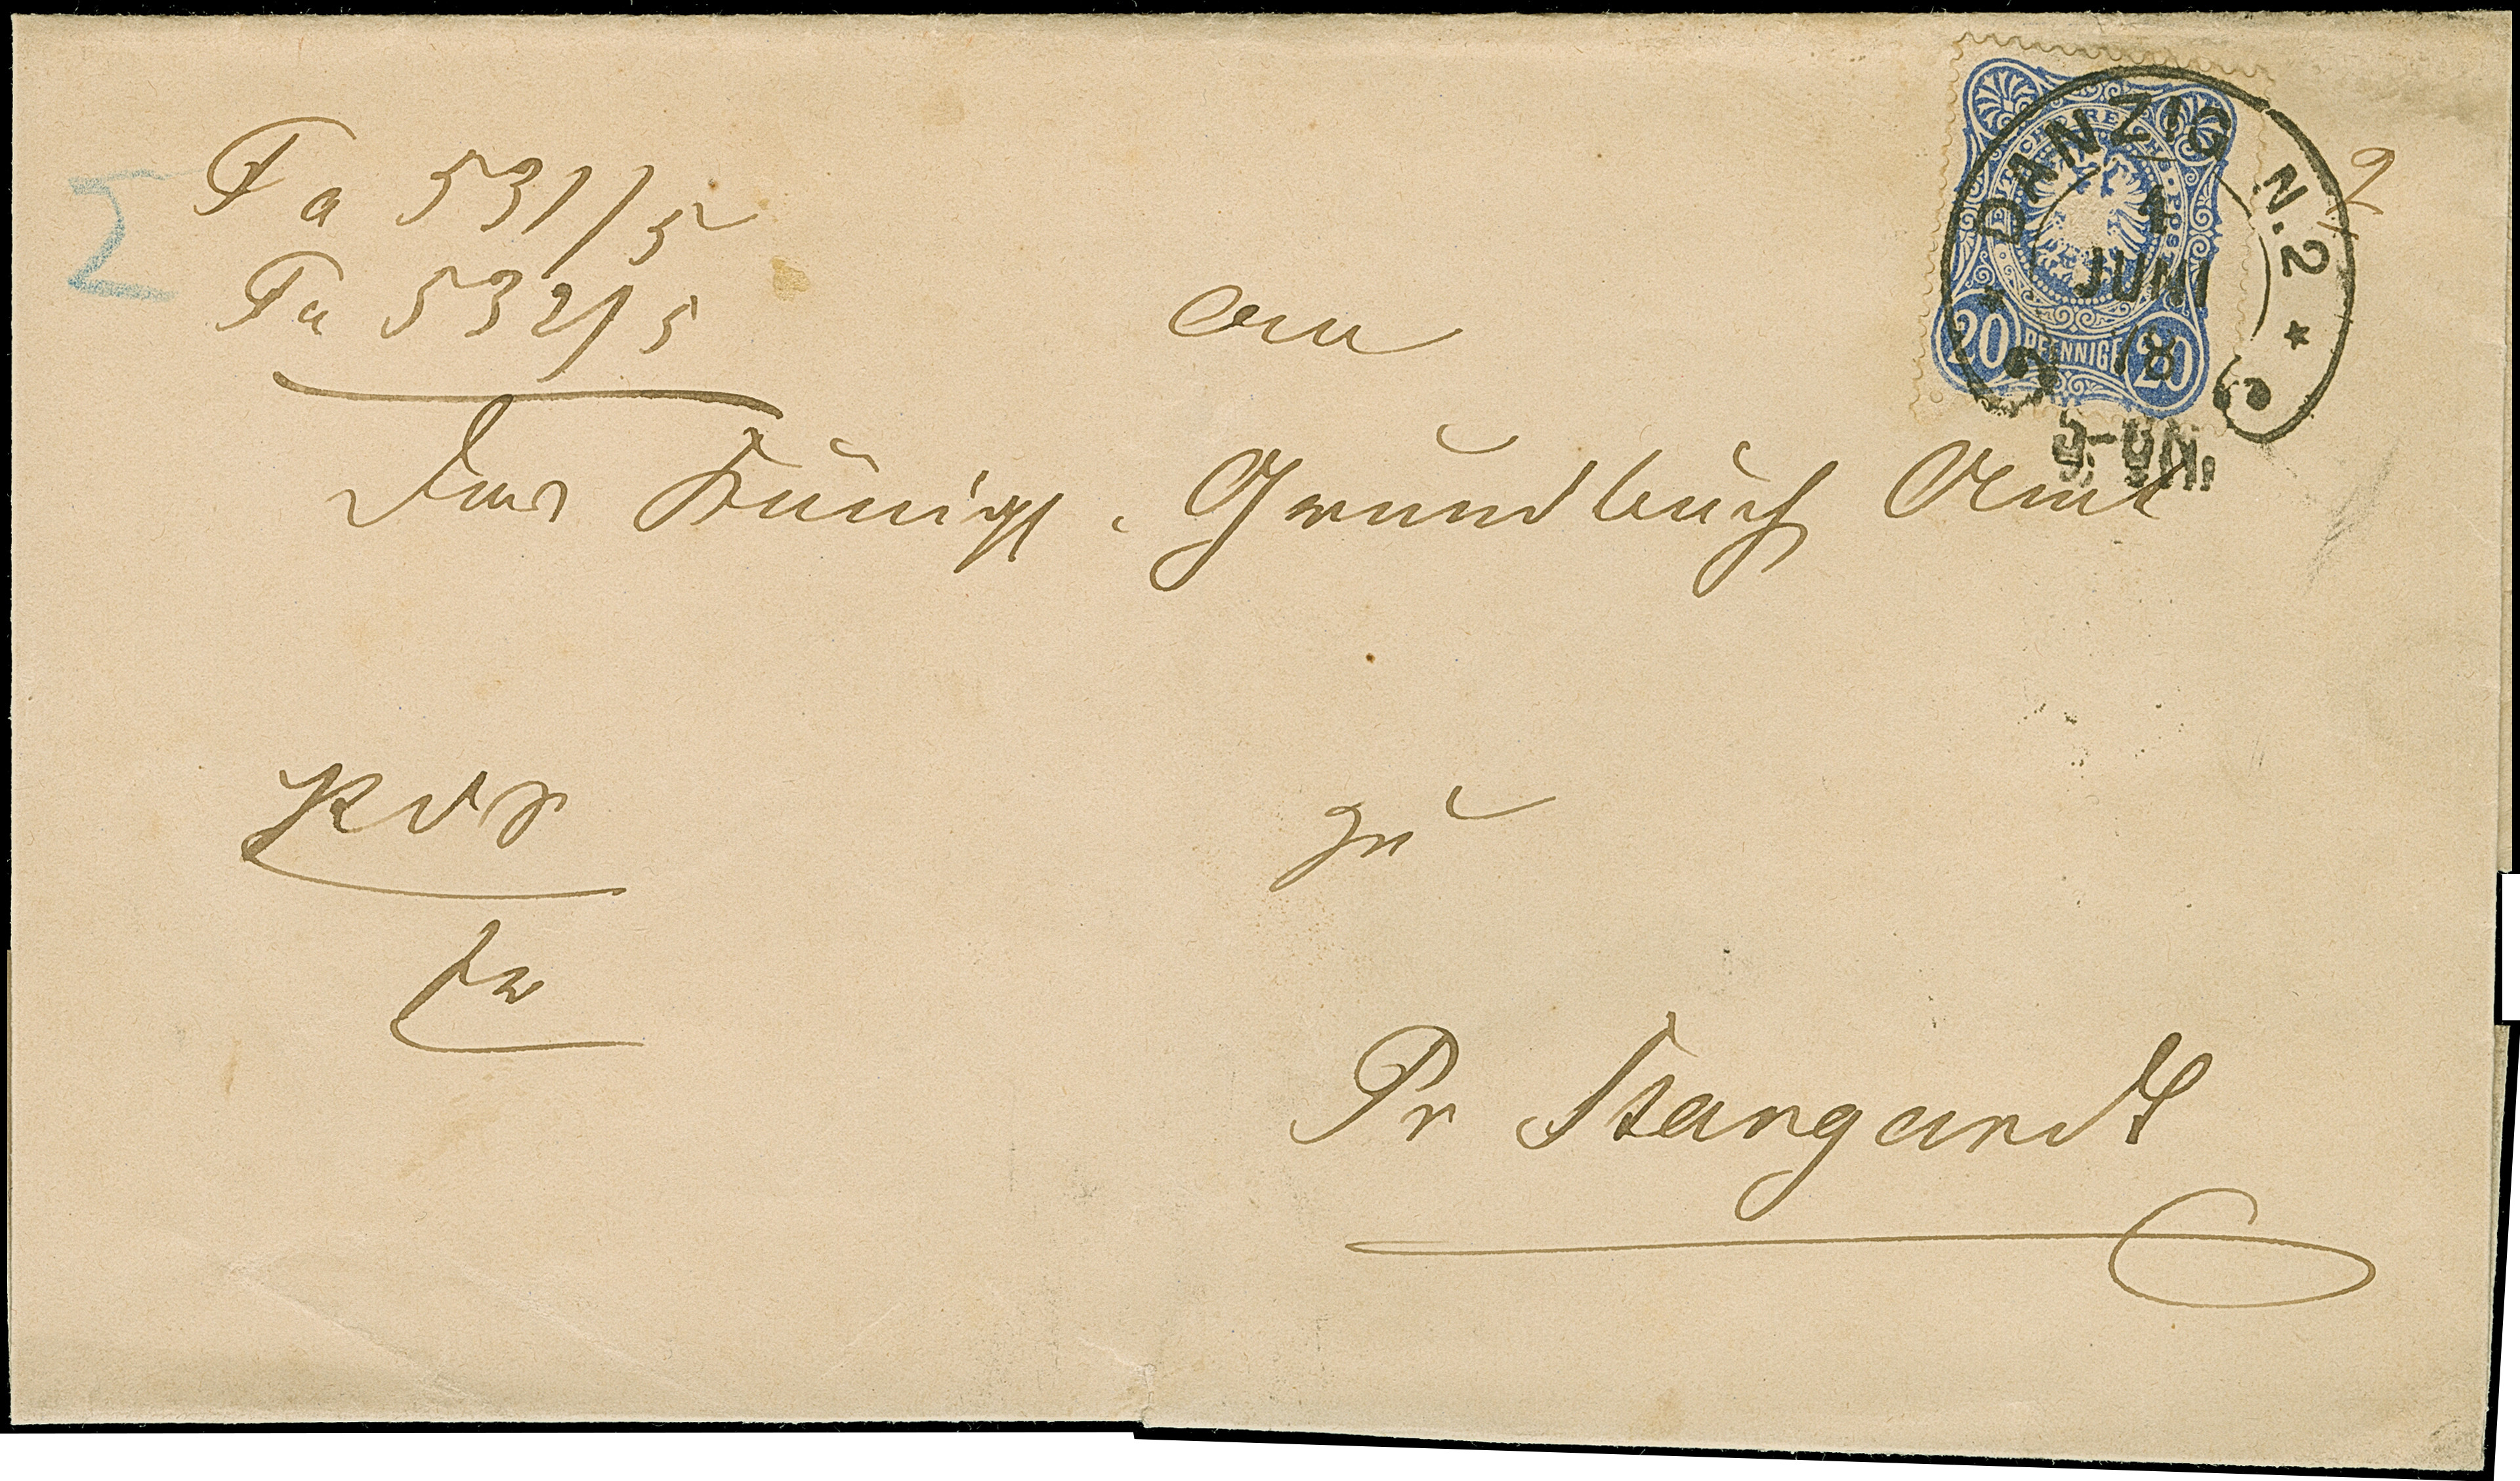 Fa 531/5
Fa 532/5
an
Das Königl. Grundbuch Amt
zu
Pr Stargardt
DANZIG N.2 *
1
JUNI
DEUTSCHE REICHS-POST
20 PFENNIGE 20
2